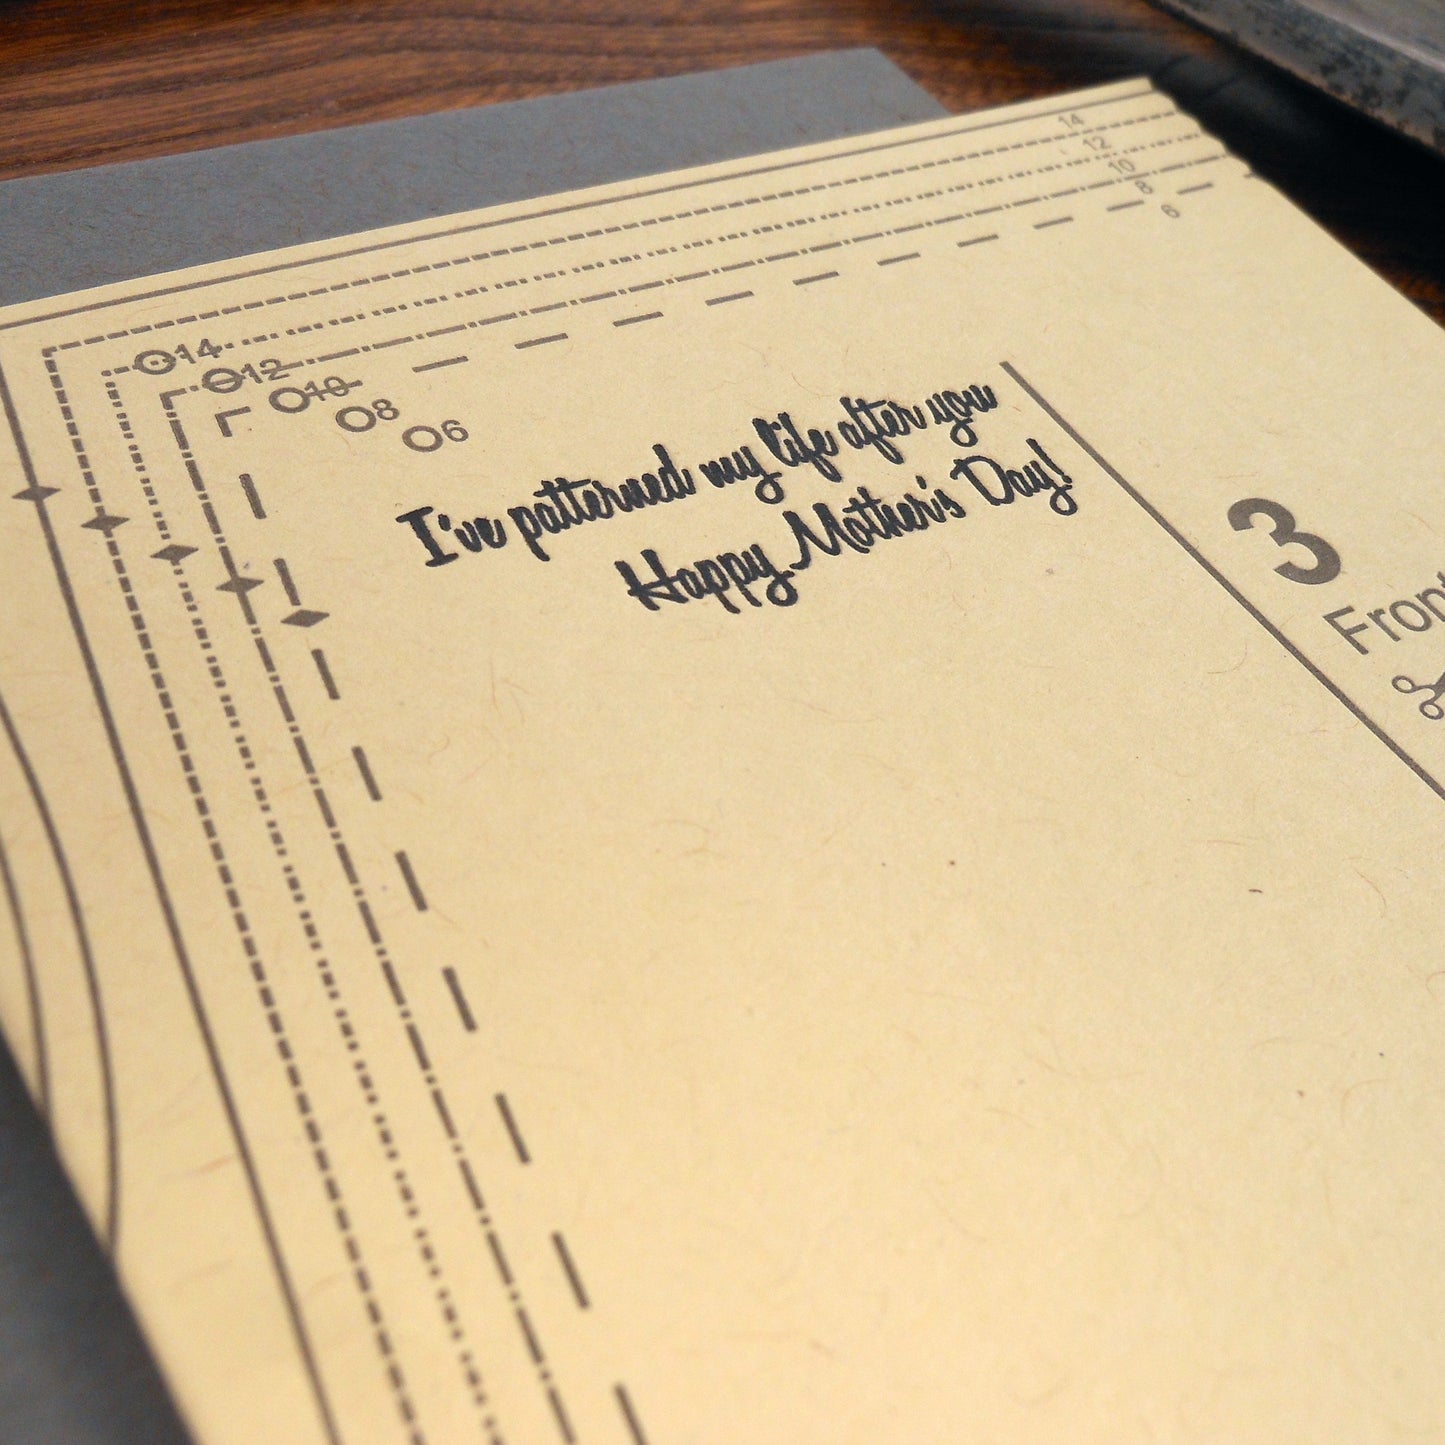 14
12
10
8
6
14
12
10
8
6
I've patterned my life after you
Happy Mother's Day!
3